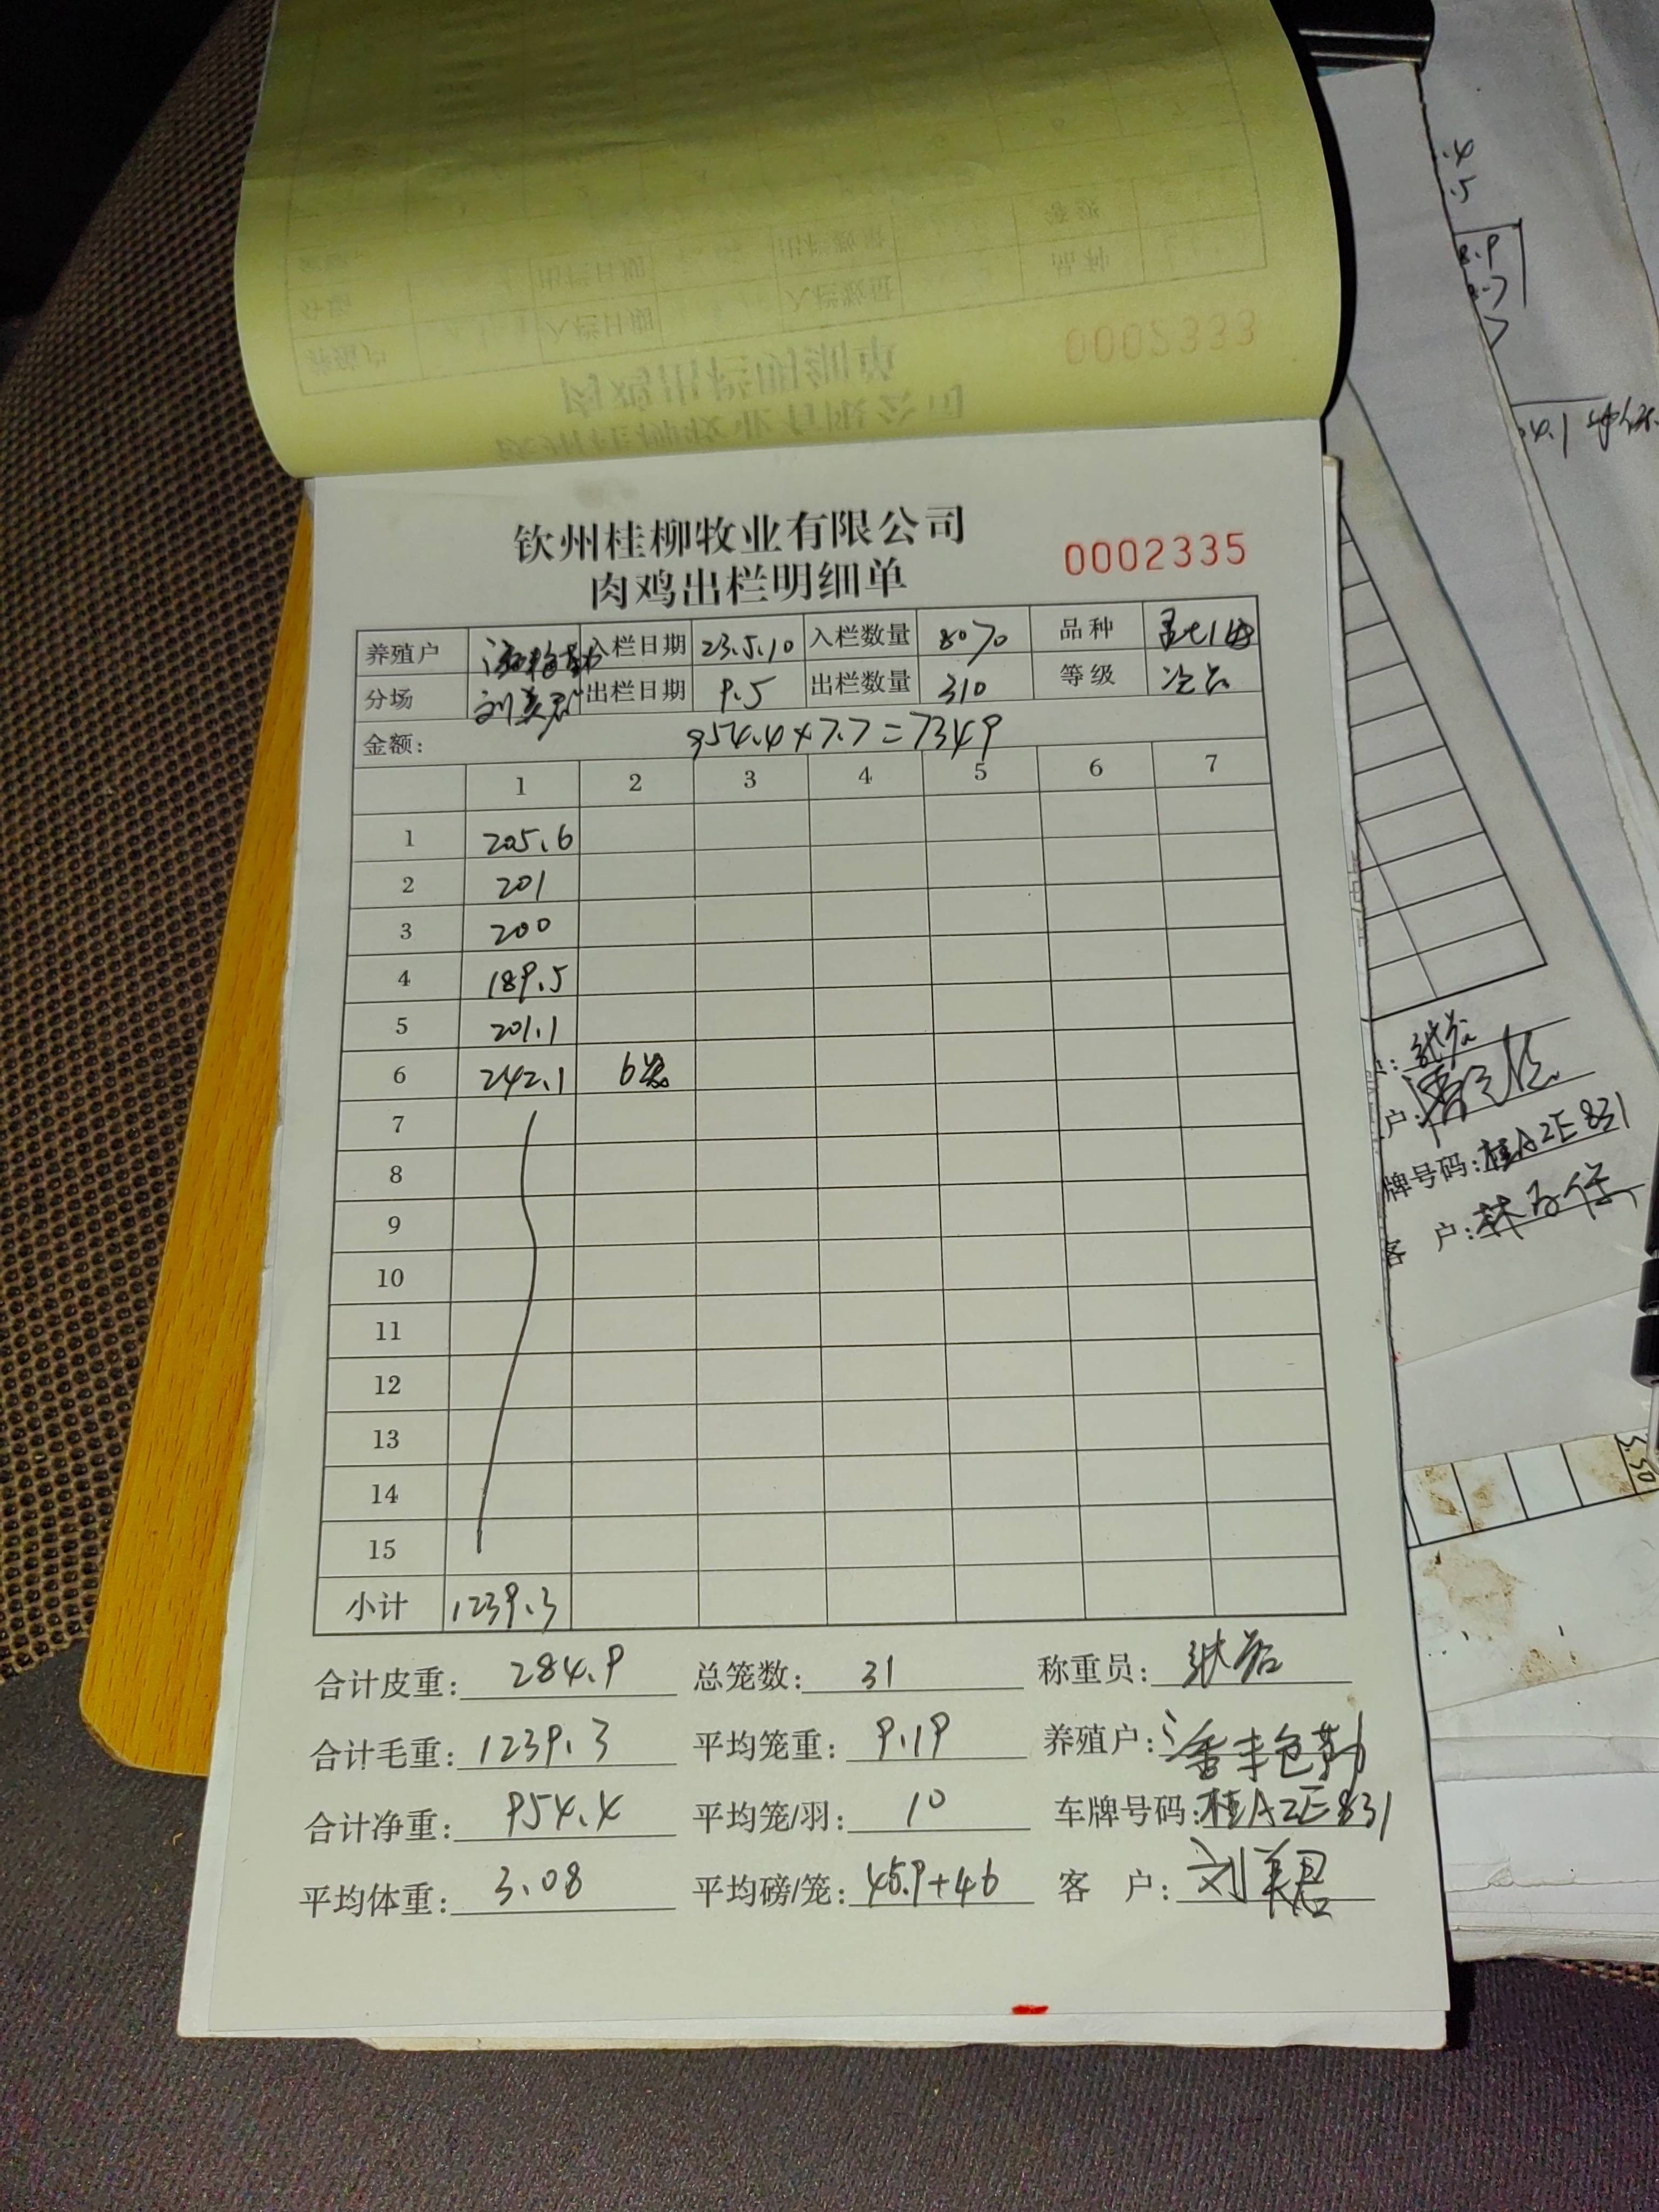 钦州桂柳牧业有限公司
肉鸡出栏明细单
0002335
养殖户 入栏日期 23.5.10 入栏数量 8070 品种
分场 刘美君 出栏日期 9.5 出栏数量 310 等级
金额: 954.4×7.7=7349
1 2 3 4 5 6 7
1 205.6
2 201
3 200
4 189.5
5 201.1
6 242.1 6笼
7
8
9
10
11
12
13
14
15
小计 1239.3
合计皮重: 284.9 总笼数: 31 称重员:
合计毛重: 1239.3 平均笼重: 9.19 养殖户:
合计净重: 954.4 平均笼/羽: 10 车牌号码: 桂A2E831
平均体重: 3.08 平均磅/笼: 45.9+46 客 户: 刘美君
0002333
户:
牌号码: 桂A2E831
客 户:
5.50